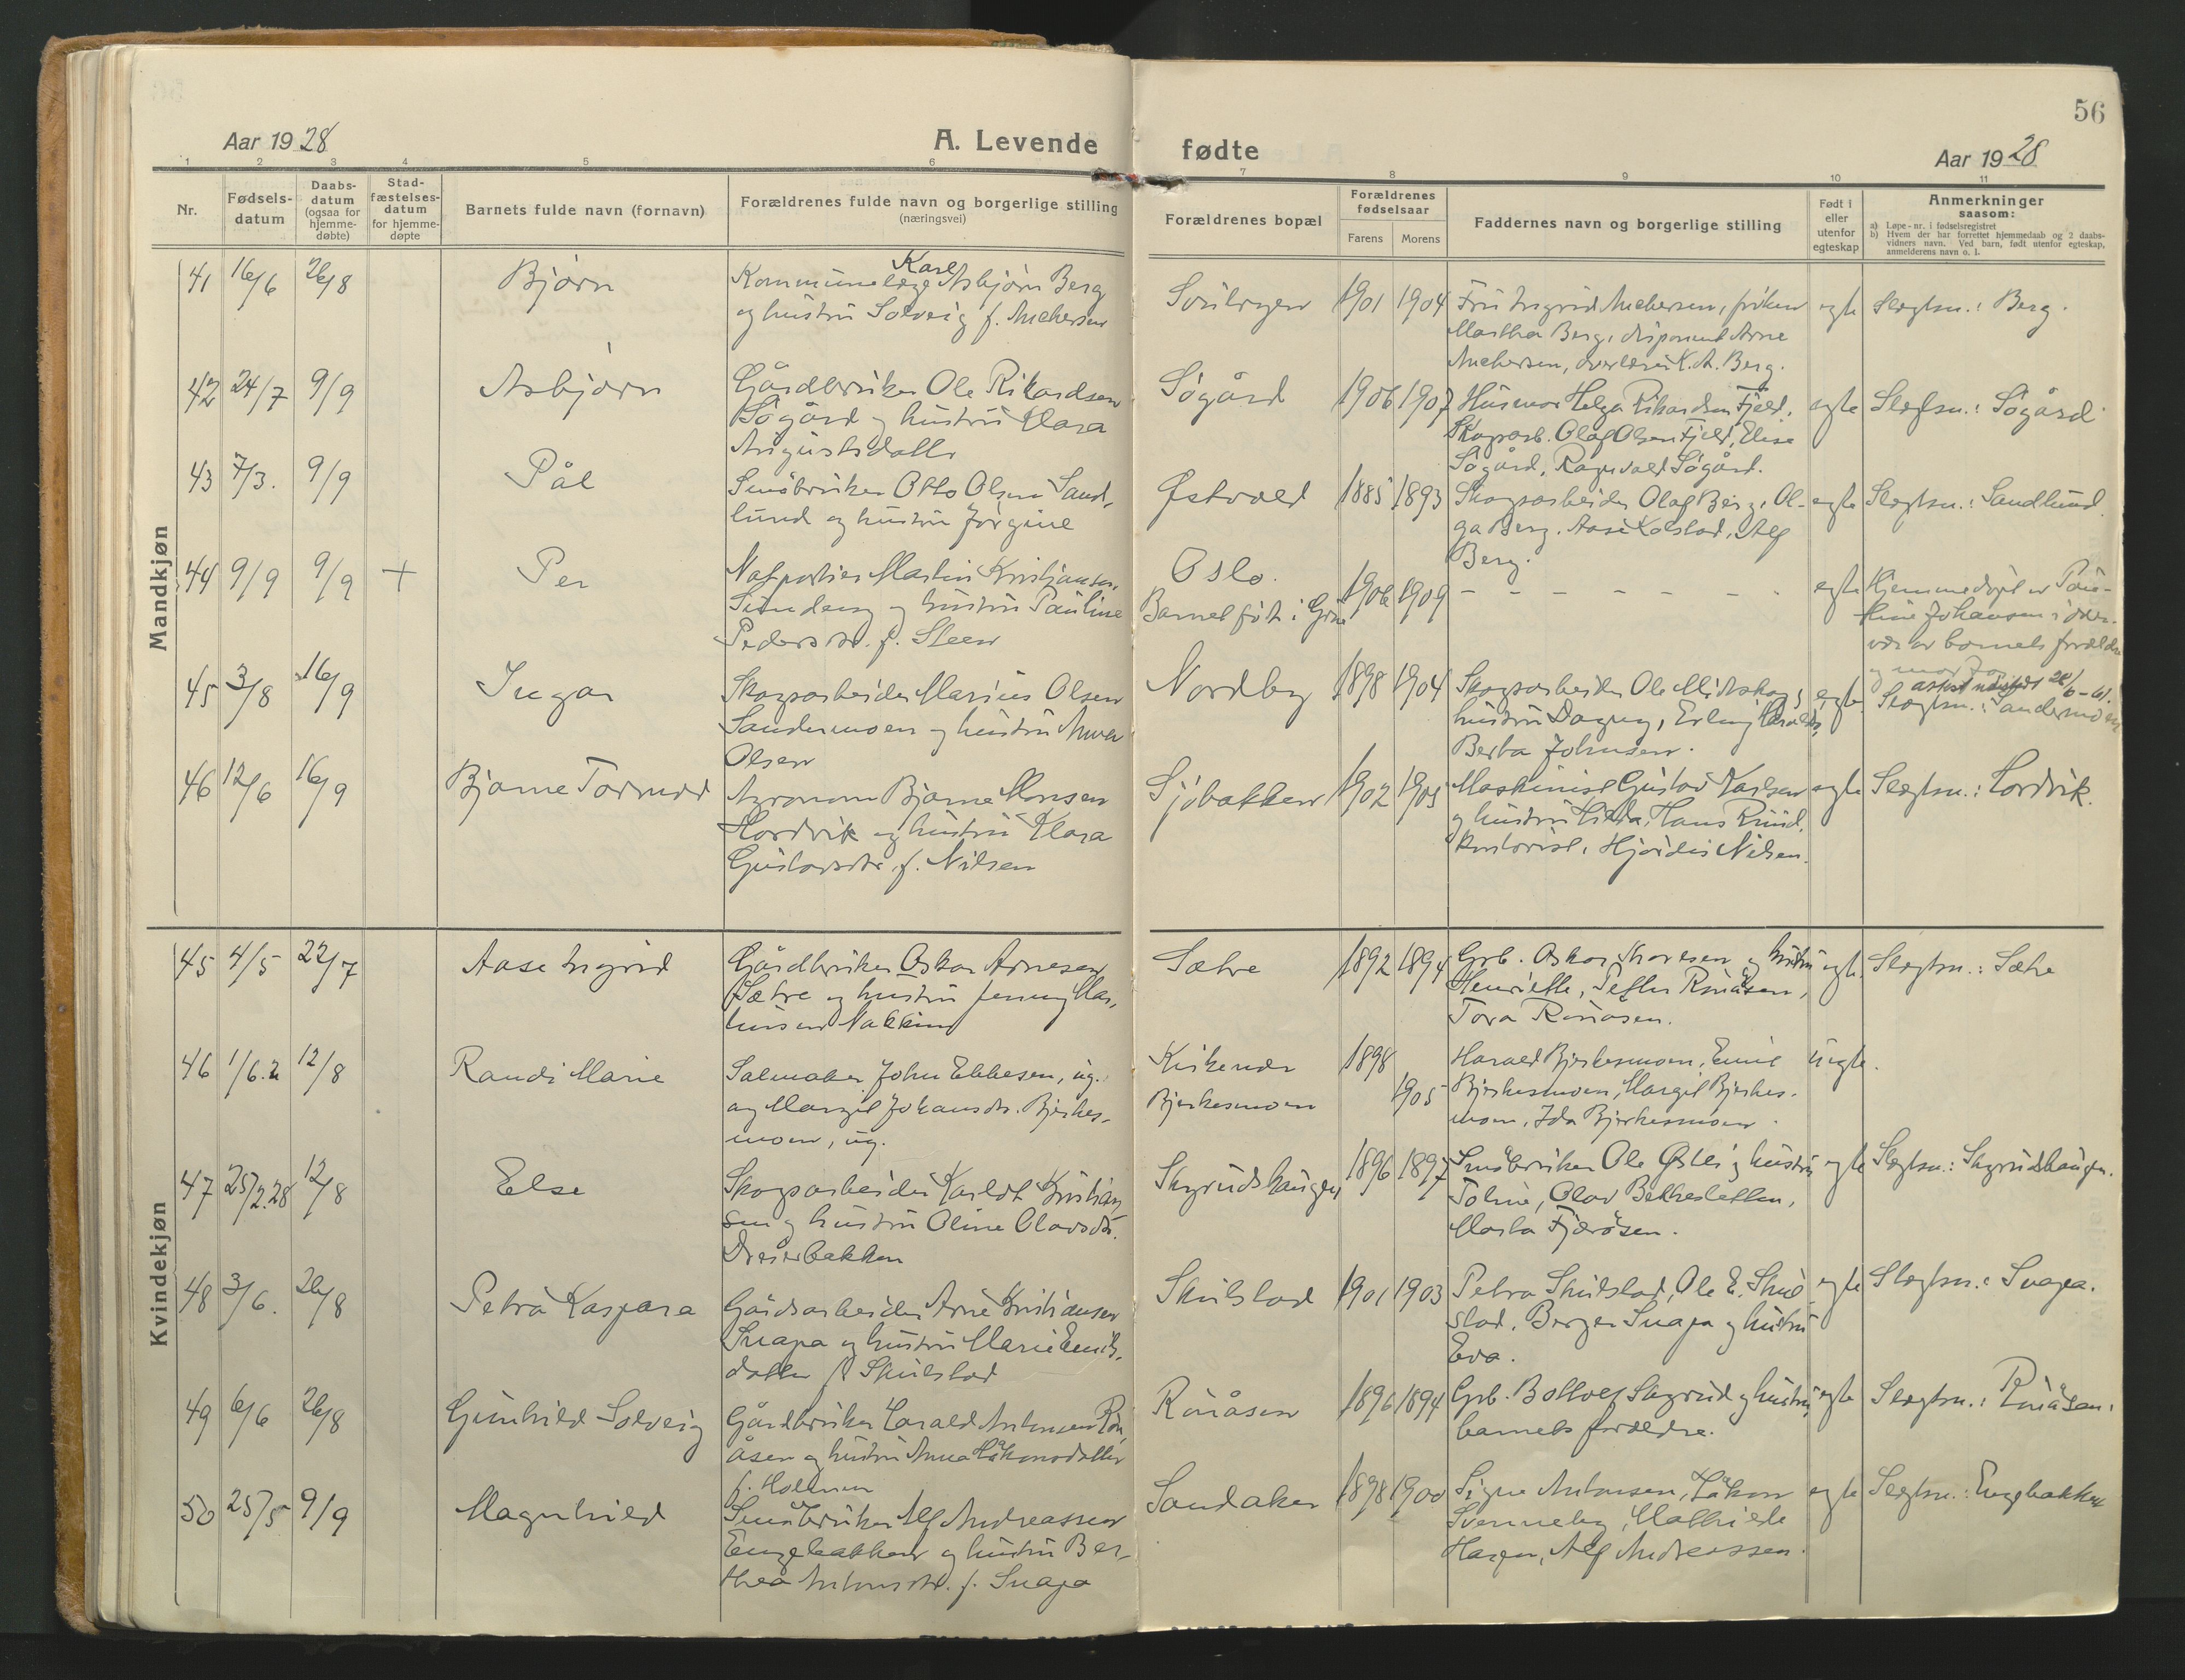 56
Aar 1928
A. Levende
fødte
Aar 1928
1 2 3 4 5 6 7 8 9 10 11
Nr.
Fødsels-
datum
Daabs-
datum
(ogsaa for
hjemme-
døbte)
Stad-
fæstelses-
datum
for hjemme-
døpte
Barnets fulde navn (fornavn)
Forældrenes fulde navn og borgerlige stilling
(næringsvei)
Forældrenes bopæl
Forældrenes
fødselsaar
Farens Morens
Faddernes navn og borgerlige stilling
Født i
eller
utenfor
egteskap
Anmerkninger
saasom:
a) Løpe-nr. i fødselsregistret
b) Hvem der har forrettet hjemmedaab og 2 daabs-
vidners navn. Ved barn, født utenfor egteskap,
anmelderens navn o. l.
Mandkjøn
41 16/6 26/8
Bjørn
Karl
Kommunelæge Asbjørn Berg
og hustru Solveig f. Michelsen
1901 1904
Fru Ingrid Michelsen, frøken
Martha Berg, disponent Arne
Michelsen, overlærer K. A. Berg.
egte
Slegtsn.: Berg.
42 24/7 9/9
Asbjørn
Gårdbruker Ole Rikardsen
Søgård og hustru Klara
Augustsdatter
Søgård
1906 1907
Husmor Helga Rikardsen Fjeld,
Skogsarb. Olaf Olsen Fjeld, Elise
Søgård, Ragnvald Søgård.
egte
Slegtsn.: Søgård
43 7/3. 9/9
Pål
Småbruker Otto Olsen Sand-
lund og hustru Jørgine
Østvold
1885 1893
Skogsarbeider Olaf Berg, Ol-
ga Berg, Aase Kolstad, Alf
Berg.
egte
Slegtsn.: Sandlund.
44 9/9 9/9 +
Per
Natportier Martin Kristiansen
og hustru Pauline
Pedersdtr. f. Steen
Oslo.
Barnet født i Grue
1906 1909
- - - - - - -
egte
Hjemmedøpt av Pau-
line Johansen i over-
vær av barnets forældre
og mor
attest utstedt 28/6-61.
45 3/8 16/9
Ingar
Skogsarbeider Marius Olsen
Sandermoen og hustru Anna
Olsen
Nordby
1898 1904
Skogsarbeider Ole Midtskog,
hustru Dagny, Erling
Berta Johnsen.
egte
Slegtsn.: Sandermoen
46 12/6 16/9
Bjarne Tormod
Agronom Bjarne Monsen
Hordvik og hustru Klara
Gustavsdtr. f. Nilsen
Sjøbakken
1902 1905
Maskinist Gustav Karlsen
og hustru Hilda, Hans Ruud,
kontorist, Hjørdis Nilsen.
egte
Slegtsn.: Hordvik.
Kvindekjøn
45 4/5 22/7
Aase Ingrid
Gårdbruker Oskar Arnesen
Sætre og hustru Jenny Mar-
tinsen Nakkim
Sætre
1892 1894
Grb. Oskar og hustru
Henriette, Petter Ruuåsen,
Tora Ruuåsen.
egte
Slegtsn.: Sætre
46 1/6.2 12/8
Randi Marie
Salmaker John Ebbesen, ug.
og Margit Johansdtr. Bjerkes-
moen, ug.
Kirkenær
Bjerkesmoen
1898
1905
Harald Bjerkesmoen, Emil
Bjerkesmoen, Margit Bjerkes-
moen, Ida Bjerkesmoen.
uegte.
47 25/2.28 12/8
Else
Skogsarbeider Karldt Kristian-
sen og hustru Oline Olavsdtr.
Dreierbakken
Skyrudshaugen
1896 1897
Småbruker Ole Østli og hustru
Toline, Olav Bekkesletten,
Marta Fjeråsen.
egte
Slegtsn.: Skyrudshaugen.
48 3/6. 26/8
Petra Kaspara
Gårdsarbeider Arne Kristiansen
Snapa og hustru Marie Emils-
datter f. Skulstad
Skulstad
1901 1903
Petra Skulstad, Ole E. Skul-
stad, Berger Snapa og hustru
Eva.
egte
Slegtsn.: Snapa.
49 6/6 26/8
Gunhild Solveig
Gårdbruker Harald Antonsen Ruu-
åsen og hustru Anna Håkonsdatter
f. Hollmen
Ruuåsen
1896 1894
Grb. Bottolf Skyrud og hustru,
barnets forældre.
egte
Slegtsn.: Ruuåsen.
50 25/5 9/9
Magnhild
Småbruker Alf Andreassen
Engebakken og hustru Ber-
thea Antonsdtr. f. Snapa
Sandaker
1898 1900
Signe Antonsen, Håkon
Svenneby, Mathilde
Hagen, Alf Andreassen.
egte
Slegtsn.: Engebakken